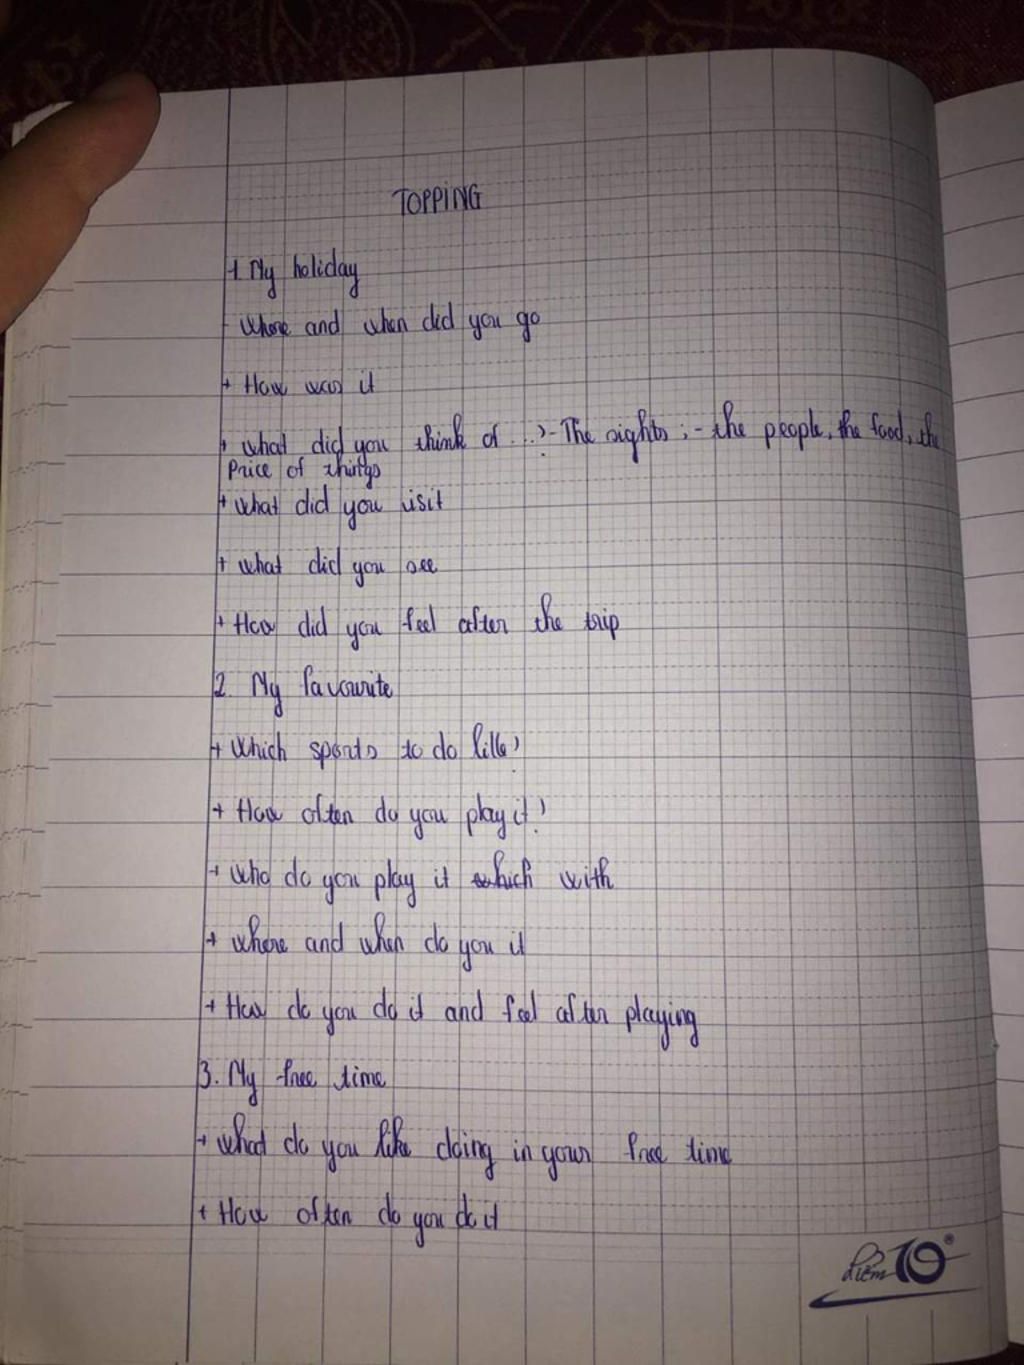 TOPPING
1. My holiday
- Where and when did you go
+ How was it
+ what did you think of ...? - The sights ; - the people, the food, the
Price of things
+ what did you visit
+ what did you see
+ How did you feel after the trip
2. My favourite
+ Which sports to do like?
+ How often do you play it?
+ who do you play it which with
+ where and when do you it
+ How do you do it and feel after playing
3. My free time
+ what do you like doing in your free time
+ How often do you do it
Điểm 10®